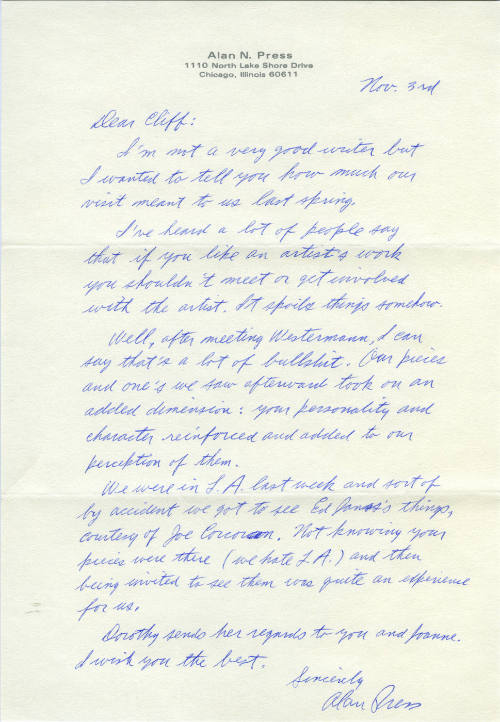 Alan N. Press
1110 North Lake Shore Drive
Chicago, Illinois 60611
Nov. 3rd
Dear Cliff:
I'm not a very good writer but
I wanted to tell you how much our
visit meant to us last spring.
I've heard a lot of people say
that if you like an artist's work
you shouldn't meet or get involved
with the artist. It spoils things somehow.
Well, after meeting Westermann, I can
say that's a lot of bullshit. Our pieces
and one's we saw afterward took on an
added dimension: your personality and
character reinforced and added to our
perception of them.
We were in L.A. last week and sort of
by accident we got to see Ed Janss's things,
courtesy of Joe Corcoran. Not knowing your
pieces were there (we hate L.A.) and then
being invited to see them was quite an experience
for us.
Dorothy sends her regards to you and Joanne.
I wish you the best.
Sincerely
Alan Press